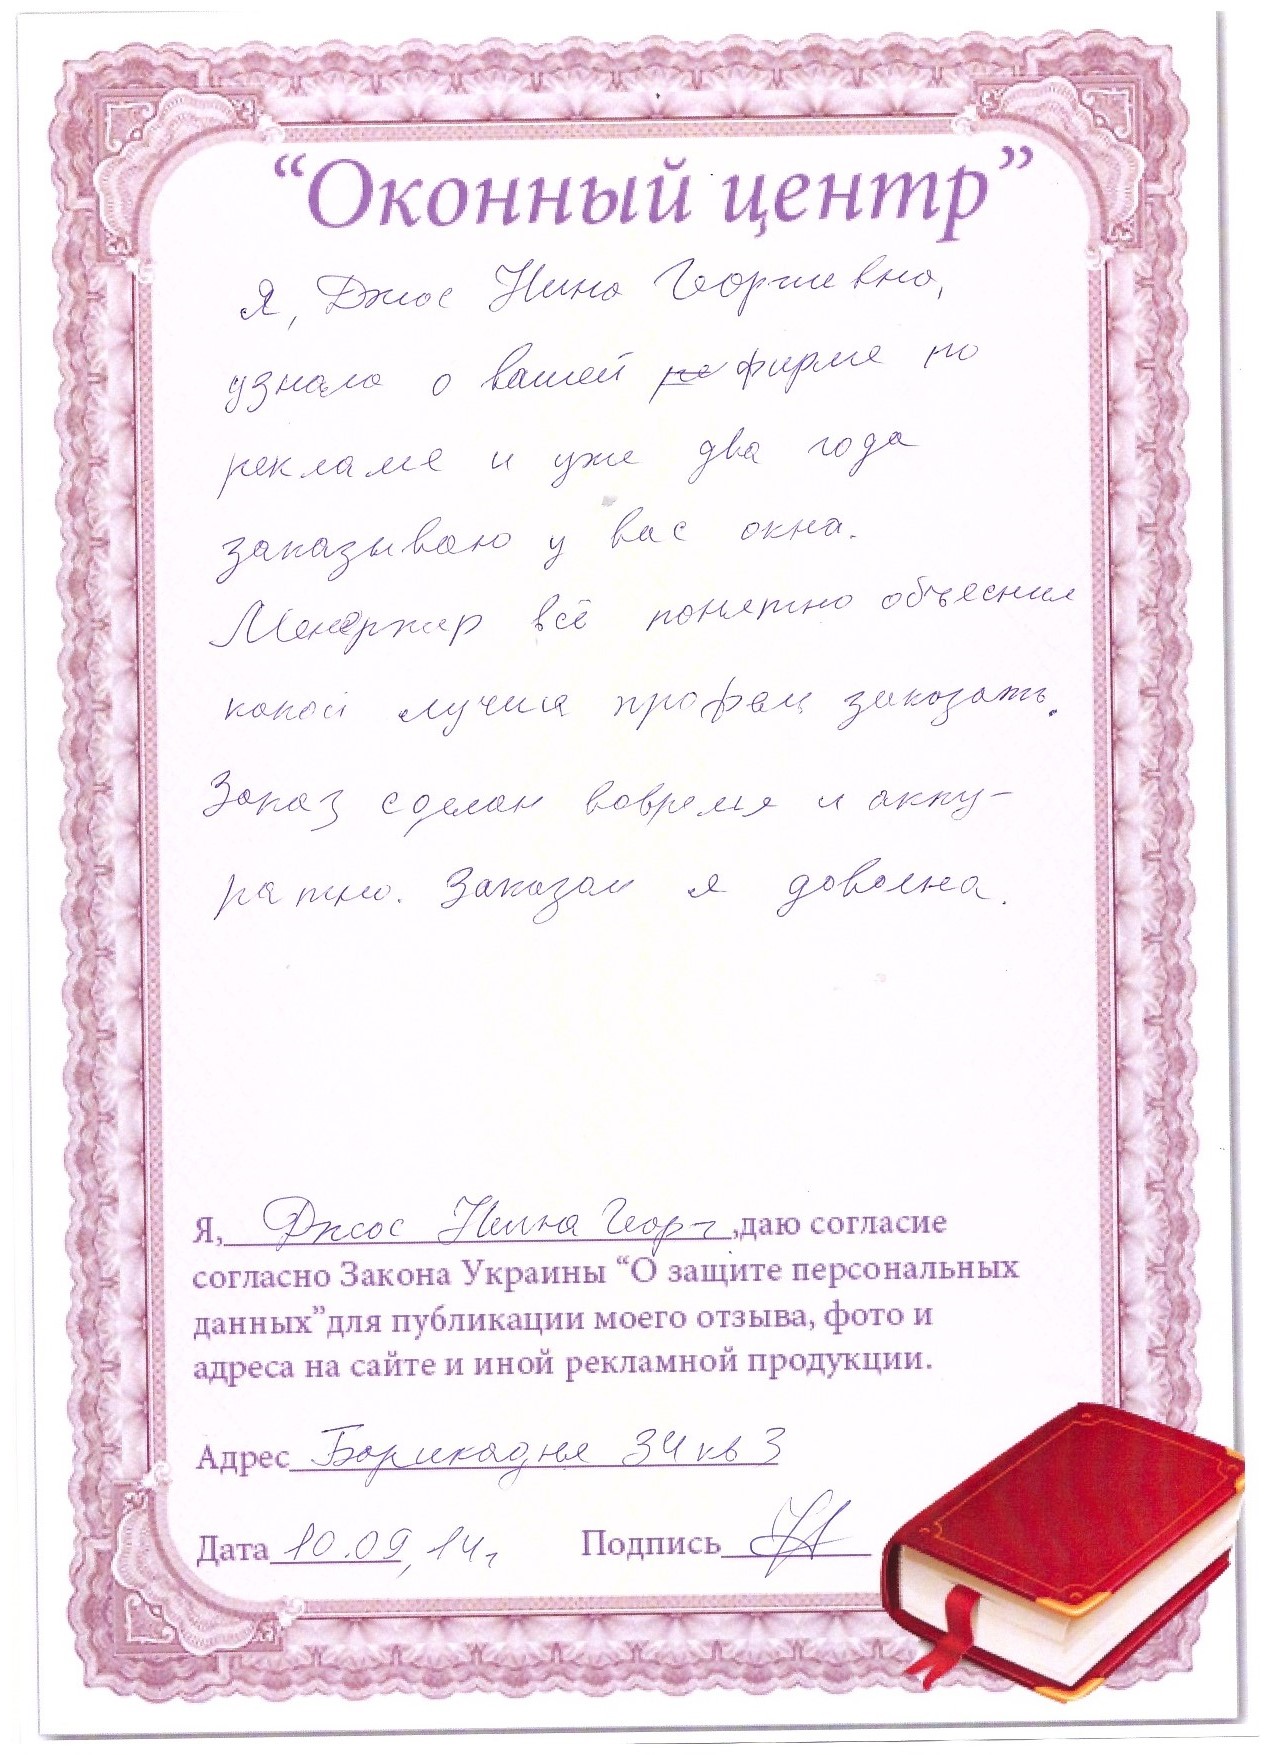 “Оконный центр”
Я, Джос Нина Георгиевна,
узнала о вашей фирме по
рекламе и уже два года
заказываю у вас окна.
Менеджер всё понятно объеснил
какой лучше заказать.
Заказ сделан вовремя и акку-
ратно. Заказом я довольна.
Я, Джос Нина Георг ,даю согласие
согласно Закона Украины “О защите персональных
данных”для публикации моего отзыва, фото и
адреса на сайте и иной рекламной продукции.
Адрес 34 кв 3
Дата 10.09,14г Подпись